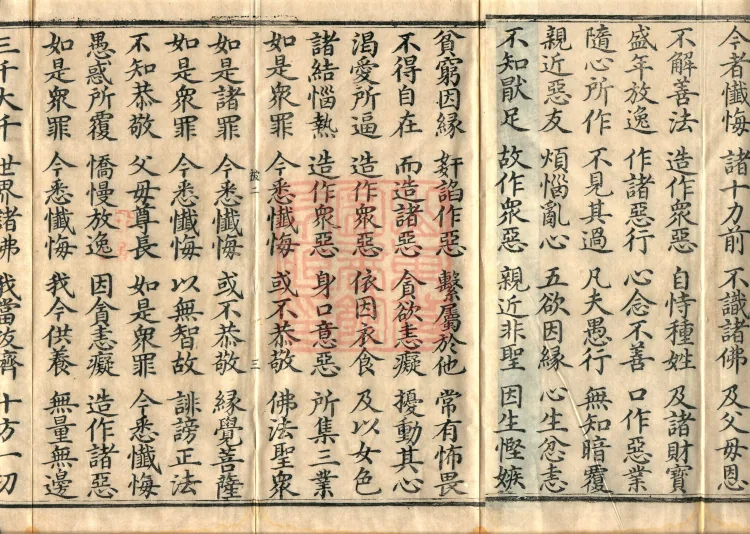 今者懺悔 諸十力前 不識諸佛 及父母恩
不解善法 造作衆惡 自恃種姓 及諸財寶
盛年放逸 作諸惡行 心念不善 口作惡業
隨心所作 不見其過 凡夫愚行 無知暗覆
親近惡友 煩惱亂心 五欲因緣 心生忿恚
不知猒足 故作衆惡 親近非聖 因生慳嫉
貧窮因緣 奸諂作惡 繫屬於他 常有怖畏
不得自在 而造諸惡 貪欲恚癡 擾動其心
渴愛所逼 造作衆惡 依因衣食 及以女色
諸結惱熱 造作衆惡 身口意惡 所集三業
如是衆罪 今悉懺悔 或不恭敬 佛法聖衆
一 三
如是諸罪 今悉懺悔 或不恭敬 緣覺菩薩
如是衆罪 今悉懺悔 以無智故 誹謗正法
不知恭敬 父母尊長 如是衆罪 今悉懺悔
愚惑所覆 憍慢放逸 因貪恚癡 造作諸惡
如是衆罪 今悉懺悔 我今供養 無量無邊
三千大千 世界諸佛 我當拔濟 十方一切